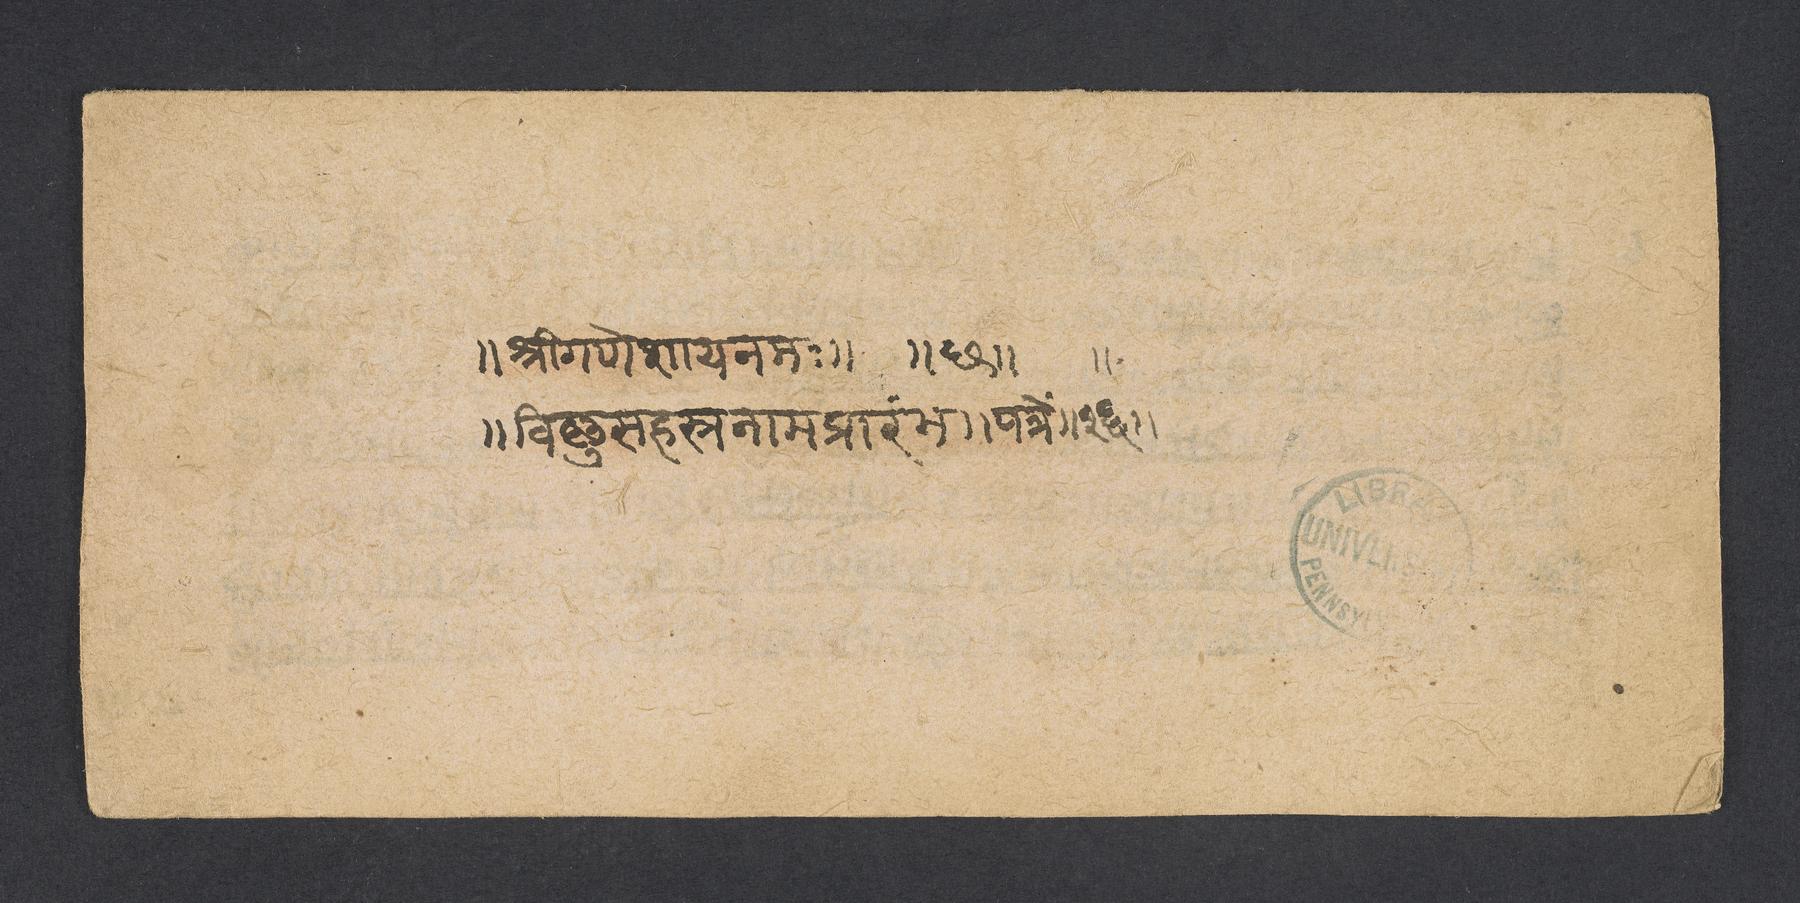 ॥ श्रीगणेशायनमः॥ ॥छ॥ ॥
॥ विष्णुसहस्त्रनामप्रारंभ ॥ पत्रें ॥१६॥
LIBRA
UNIVERS
PENNSYLV